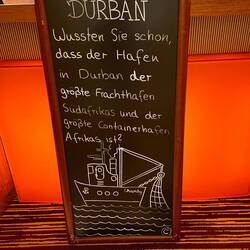 DURBAN
Wussten Sie schon,
dass der Hafen
in Durban der
größte Frachthafen
Südafrikas und der
größte Containerhafen
Afrikas ist?